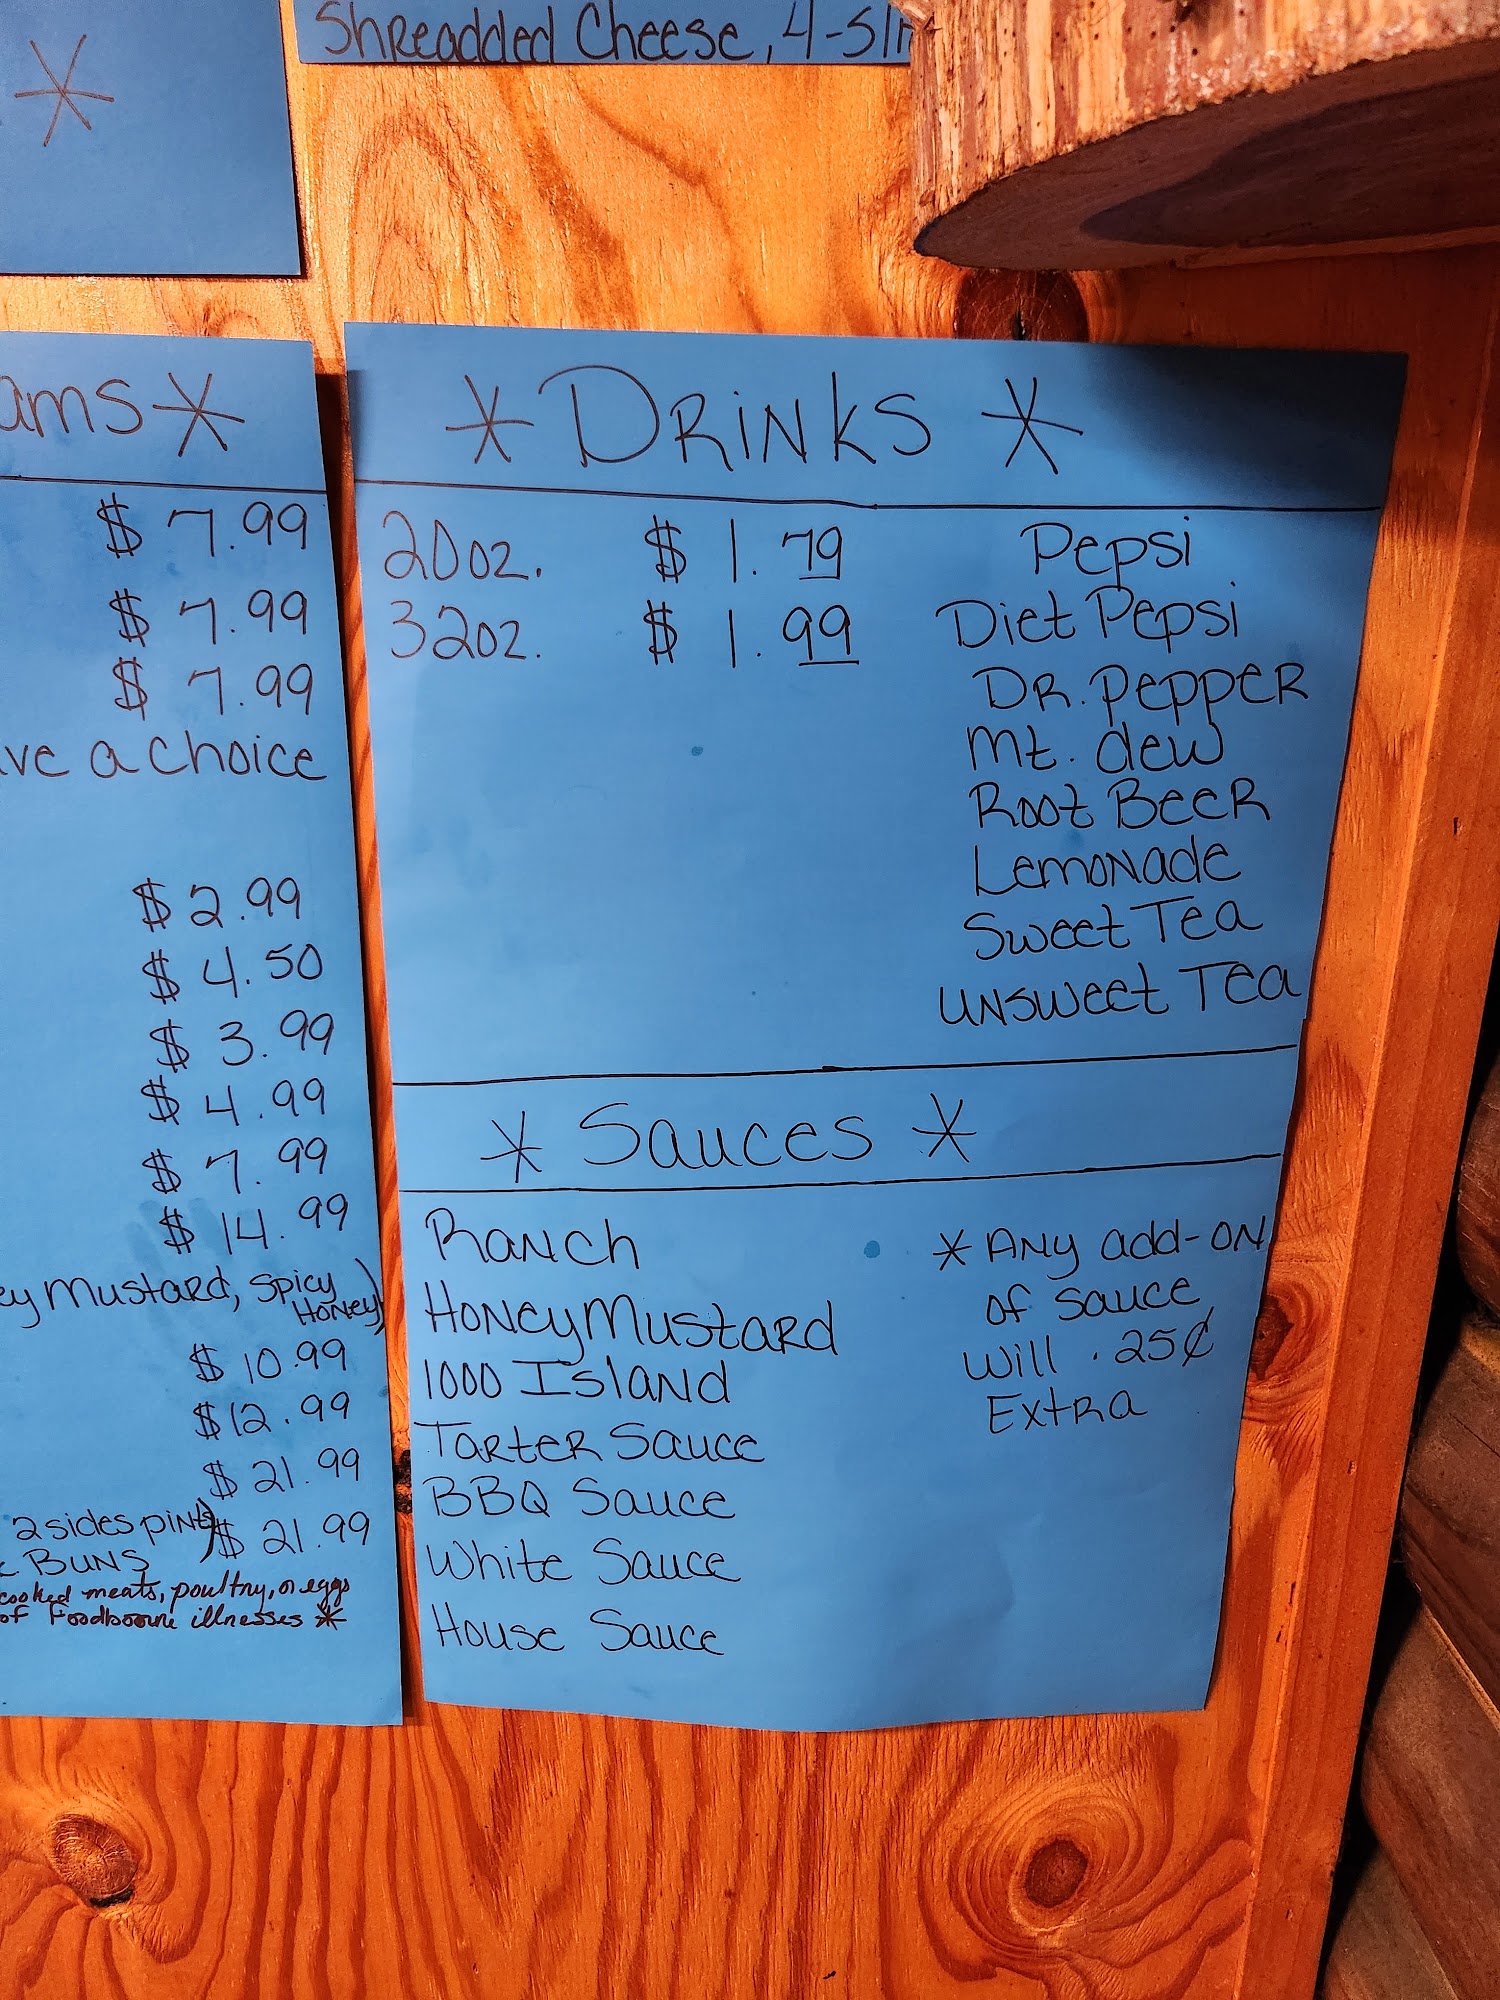 Shreadded Cheese, 4-Sli
*
ams *
$ 7.99
$ 7.99
$ 7.99
ve a choice
$ 2.99
$ 4.50
$ 3.99
$ 4.99
$ 7.99
$ 14.99
ey Mustard, Spicy
Honey)
$ 10.99
$ 12.99
$ 21.99
2 sides pint) $ 21.99
Buns
cooked meats, poultry, or eggs
of foodborne illnesses *
* Drinks *
20oz. $ 1.79 Pepsi
32oz. $ 1.99 Diet Pepsi
Dr. Pepper
Mt. dew
Root Beer
Lemonade
Sweet Tea
unsweet Tea
* Sauces *
Ranch
Honey Mustard
1000 Island
Tarter Sauce
BBQ Sauce
White Sauce
House Sauce
* Any add-on
of sauce
will .25¢
Extra